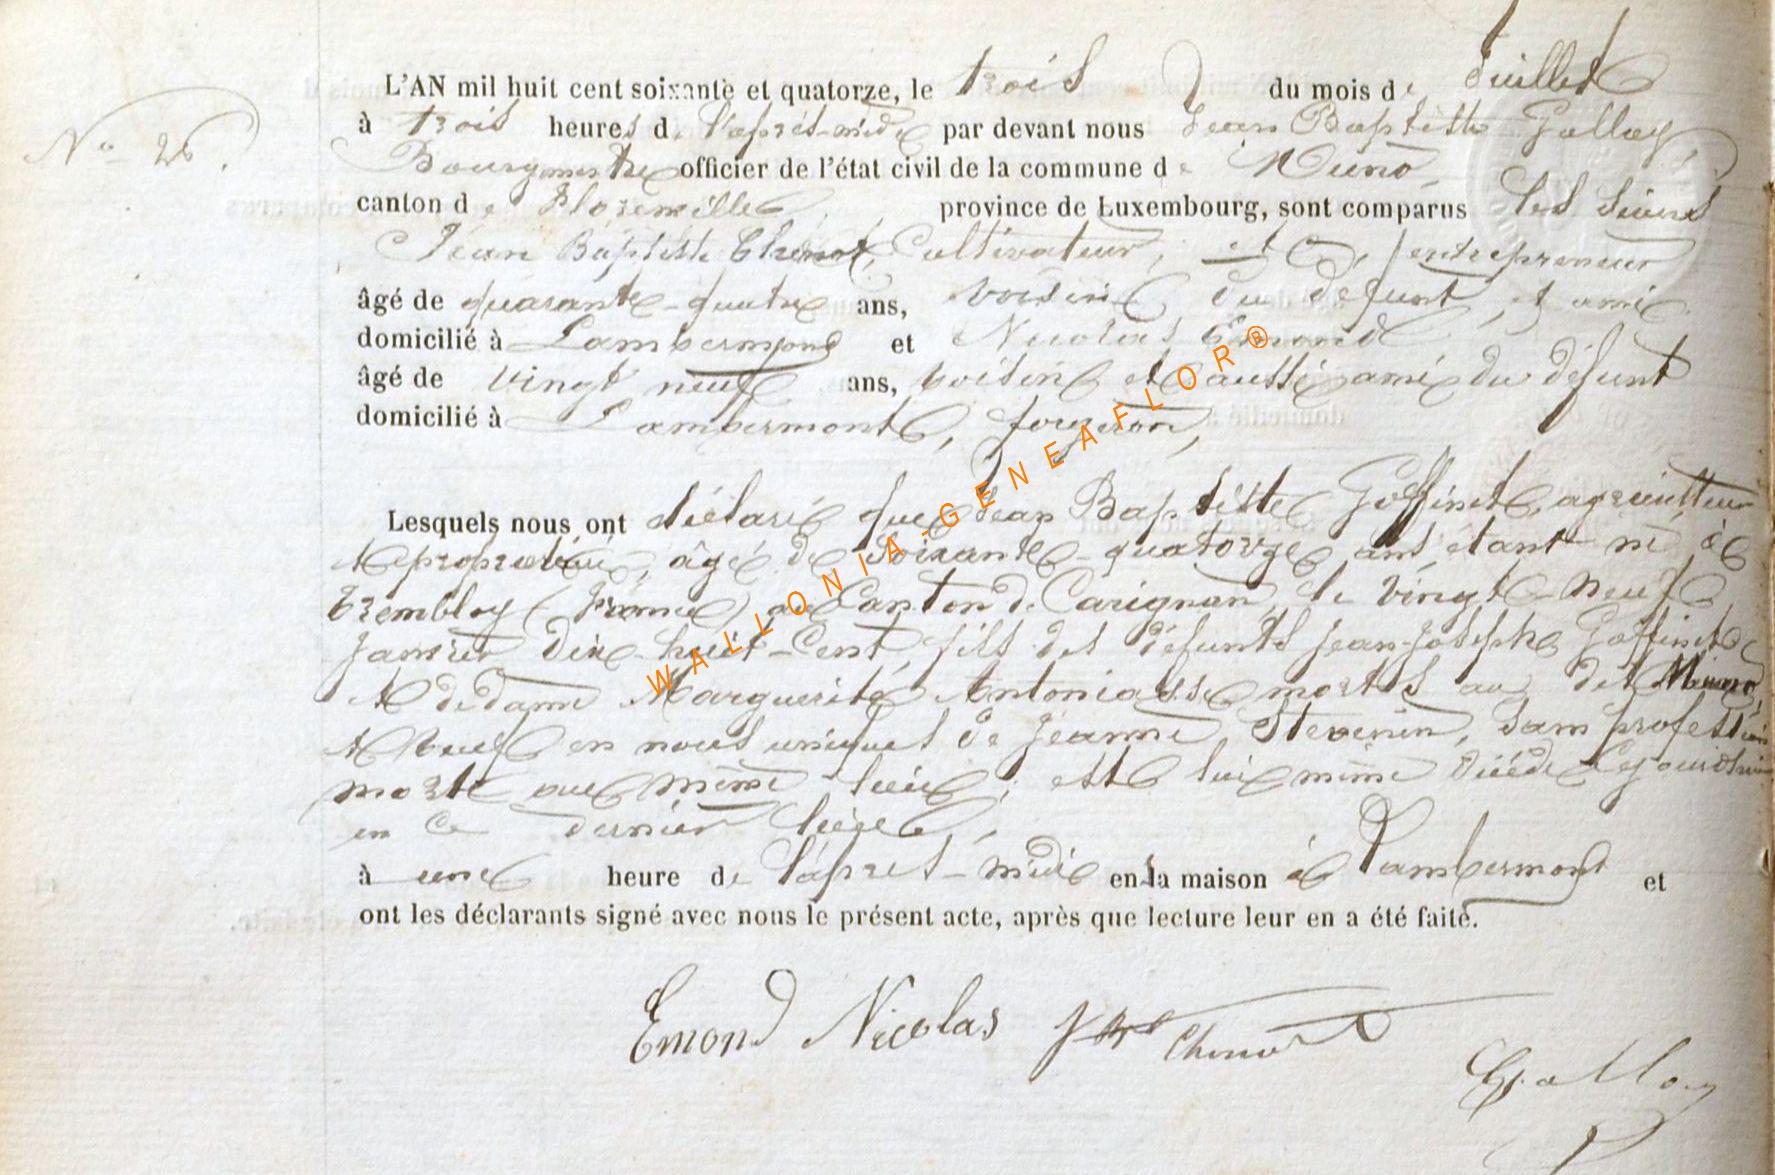 N° 26.
L'AN mil huit cent soixante et quatorze, le trois du mois de Juillet
à trois heures de l'après-midi par devant nous Jean Baptiste Galloy,
Bourgmestre officier de l'état civil de la commune de Muno,
canton de Florenville, province de Luxembourg, sont comparus les sieurs
Jean Baptiste Chenot, Cultivateur, et entrepreneur
âgé de quarante-quatre ans, voisin du défunt, et ami
domicilié à Lambermont et Nicolas Emond
âgé de vingt neuf ans, voisin et aussi ami du défunt
domicilié à Lambermont, forgeron,
Lesquels nous ont déclaré que Jean Baptiste Goffinet, agriculteur
et propriétaire, âgé de soixante-quatorze ans, étant né à
Trembloy (France) au Canton de Carignan, le vingt-neuf
Janvier dix-huit-cent, fils des défunts Jean-Joseph Goffinet
et de dame Marguerite Antoniasse morts au dit Muno,
et veuf en noces uniques de Jeanne Stevenin, sans profession
morte au même lieu, est lui même décédé aujourd'hui
en ce dernier liège,
à une heure de l'après-midi en sa maison à Lambermont et
ont les déclarants signé avec nous le présent acte, après que lecture leur en a été faite.
Emond Nicolas J Bte Chenot
Galloy
WALLONIA-GENEAFLOR®